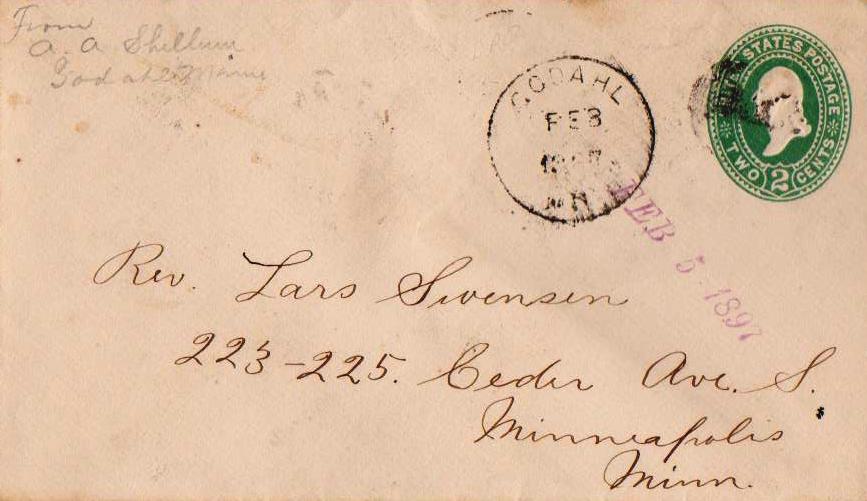 From
A. A Shellum
Godahl Minn
GODAHL
FEB
1897
MN
UNITED STATES POSTAGE
TWO 2 CENTS
FEB 5 1897
Rev. Lars Swensen
223-225. Ceder Ave. S.
Minneapolis
Minn.